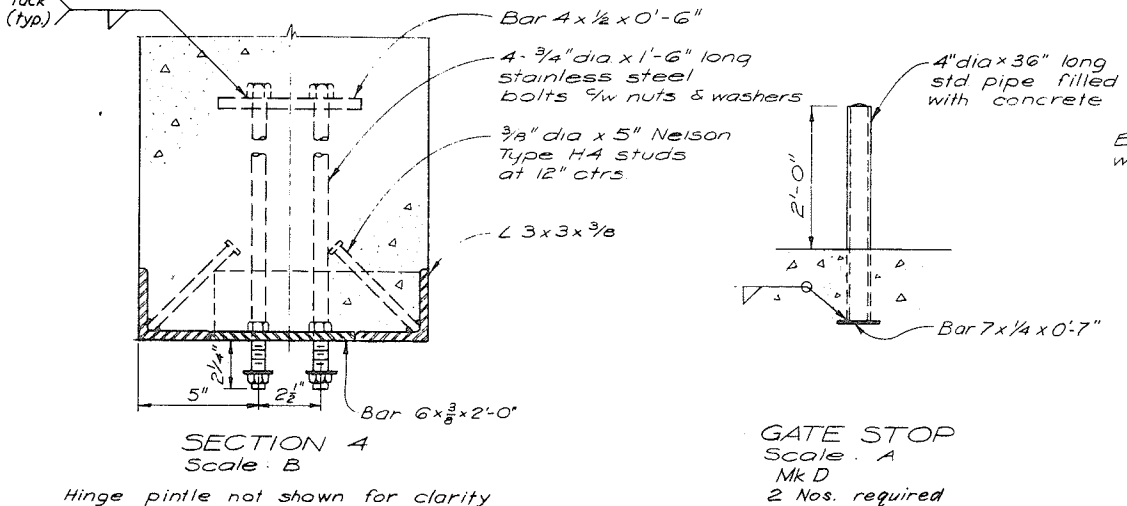 Tack
(typ.)
Bar 4 x ½ x 0'-6"
4- ¾" dia. x 1'-6" long
stainless steel
bolts c/w nuts & washers
⅜" dia x 5" Nelson
Type H4 studs
at 12" ctrs.
L 3 x 3 x ⅜
2¼"
5"
2½"
Bar 6 x ⅜ x 2'-0"
SECTION 4
Scale : B
Hinge pintle not shown for clarity
4" dia x 36" long
std. pipe filled
with concrete
2'-0"
Bar 7 x ¼ x 0'-7"
GATE STOP
Scale . A
Mk D
2 Nos. required